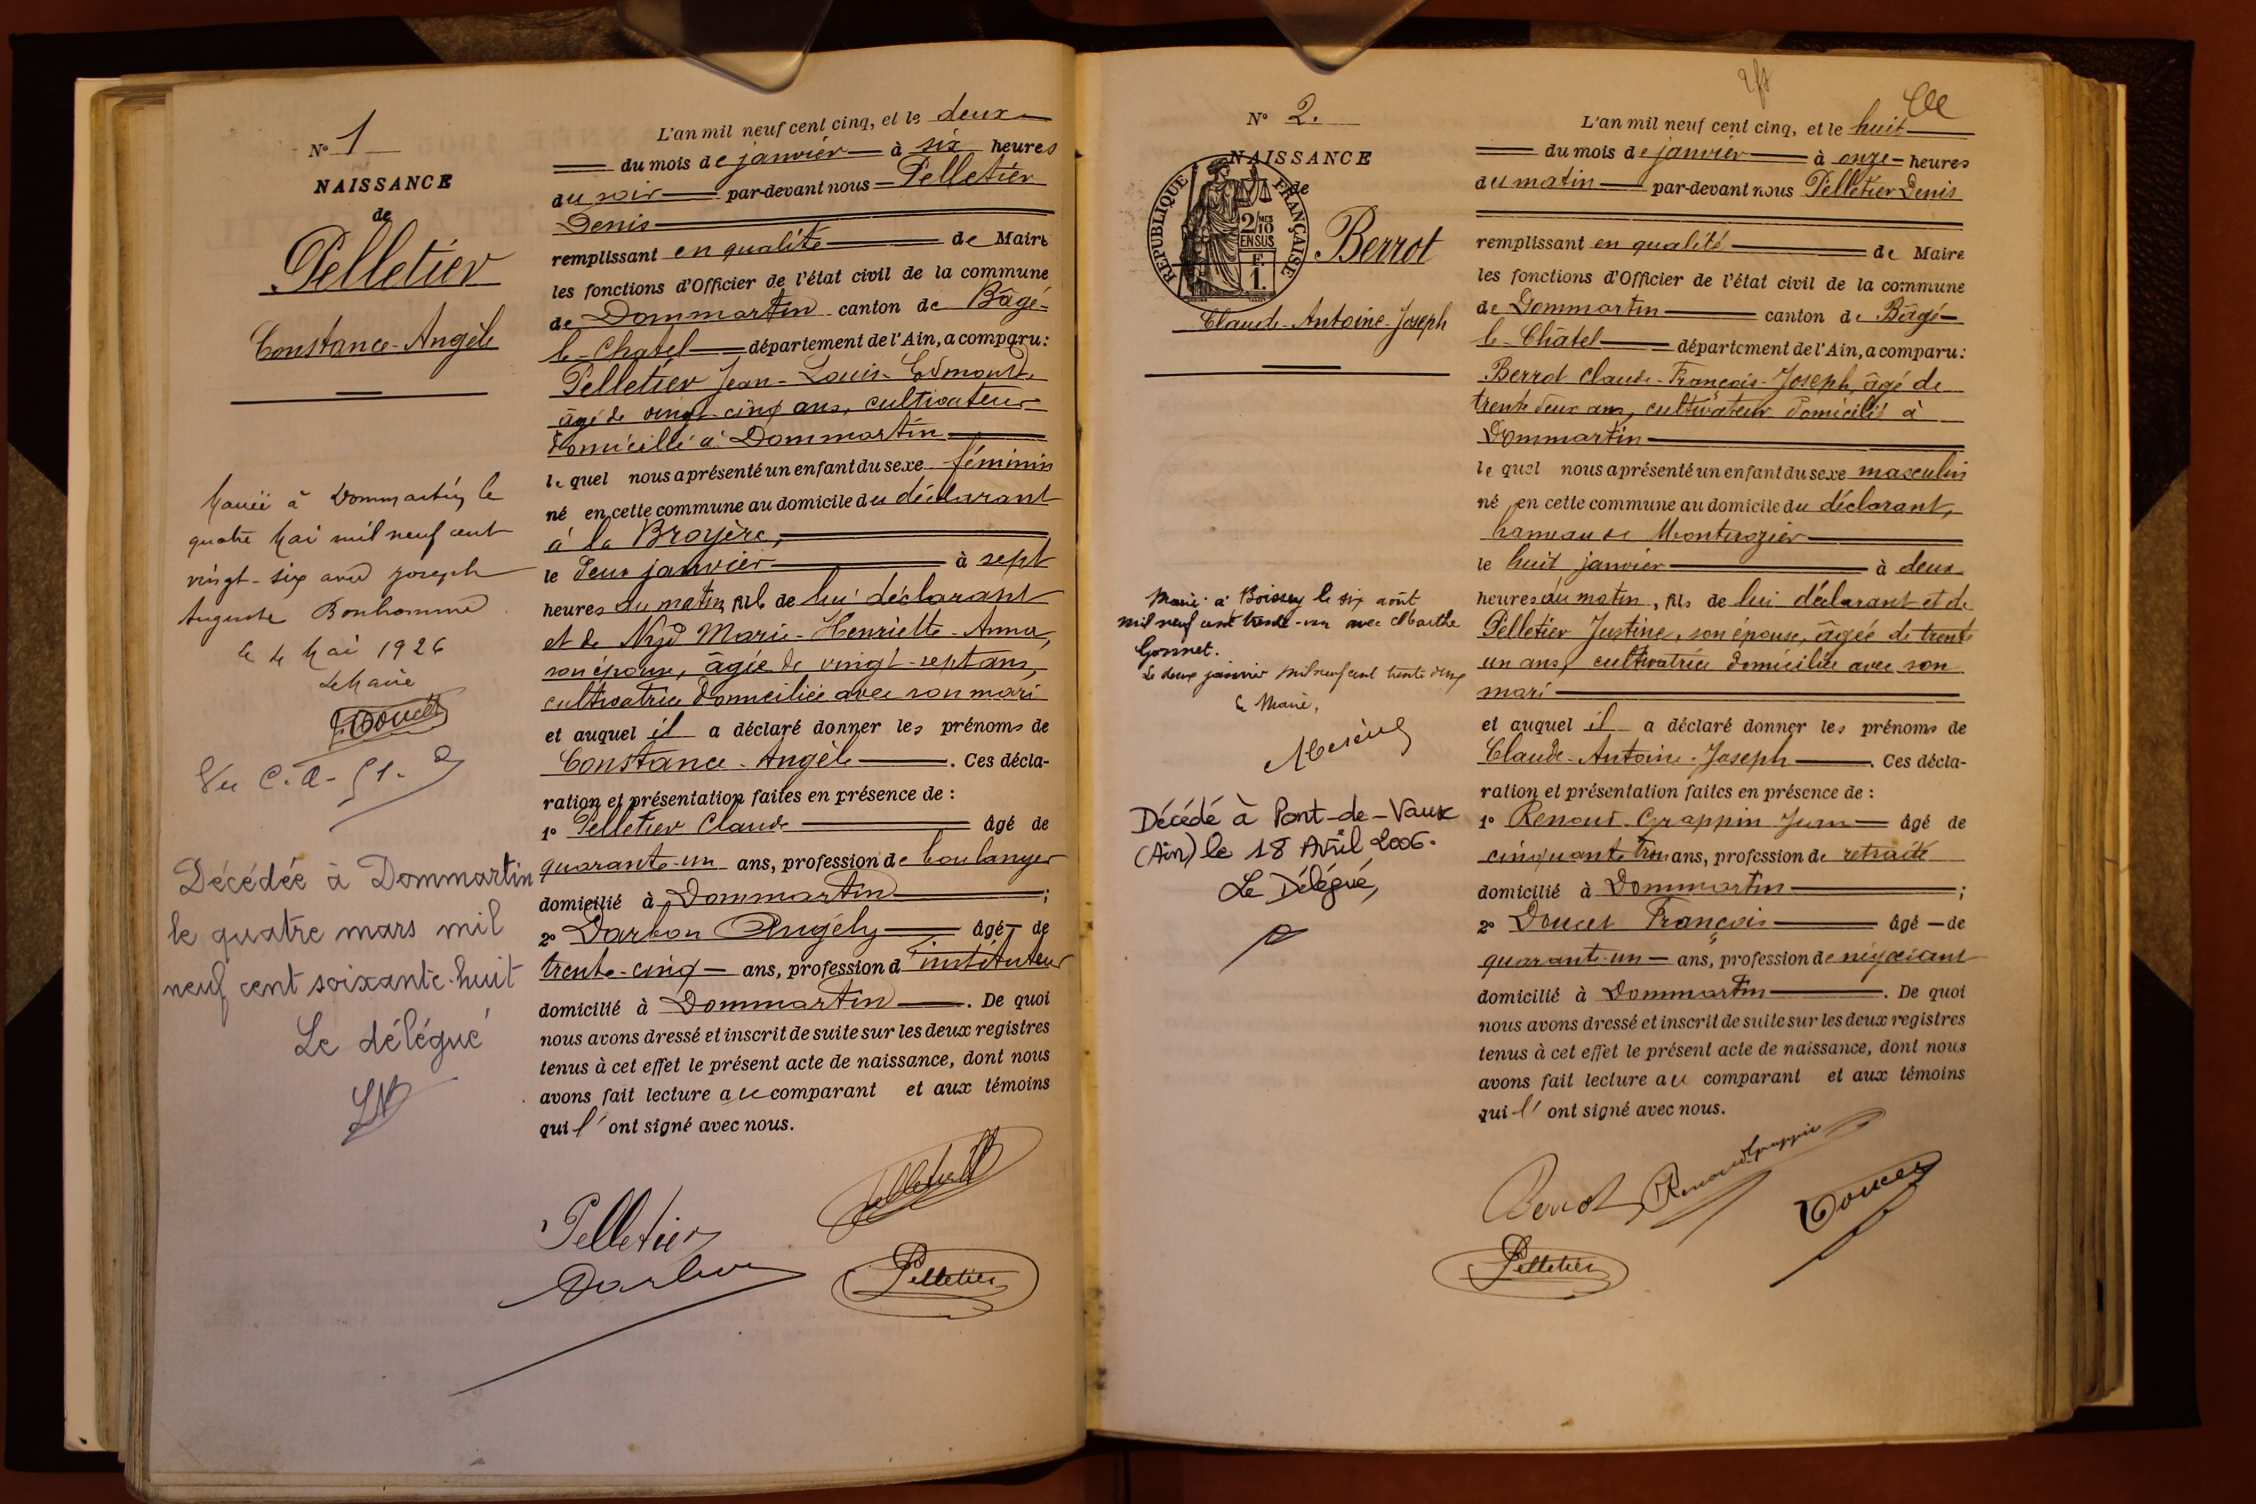 N° 1
NAISSANCE
de
Pelletier
Constance-Angèle
Mariée à Dommartin, le
quatre Mai mil neuf cent
vingt-six avec Joseph
Auguste Bonhomme
le 4 Mai 1926
Le Maire
Doucet
Vu C.A.
Décédée à Dommartin
le quatre mars mil
neuf cent soixante-huit
Le délégué
L'an mil neuf cent cinq, et le deux
du mois de janvier à six heures
du soir par-devant nous Pelletier
Denis
remplissant en qualité de Maire
les fonctions d'Officier de l'état civil de la commune
de Dommartin canton de Bâgé-
le-Chatel département de l'Ain, a comparu:
Pelletier Jean-Louis-Edmond,
âgé de vingt-cinq ans, cultivateur
domicilié à Dommartin
lequel nous a présenté un enfant du sexe féminin
né en cette commune au domicile du déclarant
à la Broyère,
le deux janvier à sept
heures du matin, fils de lui déclarant
et de Nyd Marie-Henriette-Anna,
son épouse, âgée de vingt-sept ans,
cultivatrice domiciliée avec son mari
et auquel il a déclaré donner les prénoms de
Constance-Angèle. Ces décla-
ration et présentation faites en présence de :
1° Pelletier Claude âgé de
quarante-un ans, profession de boulanger
domicilié à Dommartin ;
2° Darbon Angély âgé de
trente-cinq ans, profession d'instituteur
domicilié à Dommartin. De quoi
nous avons dressé et inscrit de suite sur les deux registres
tenus à cet effet le présent acte de naissance, dont nous
avons fait lecture au comparant et aux témoins
qui l'ont signé avec nous.
Pelletier
Pelletier
Darbon
Pelletier
N° 2.
NAISSANCE
de
REPUBLIQUE FRANÇAISE
2/10 MES
EN SUS
F.
1.
Berrot
Claude-Antoine-Joseph
Marié à Boissey le six août
mil neuf cent trente-un avec Marthe
Gonnet.
Le deux janvier mil neuf cent trente deux
Le Maire,
Décédé à Pont-de-Vaux
(Ain) le 18 Avril 2006.
Le Délégué,
L'an mil neuf cent cinq, et le huit
du mois de janvier à onze heures
du matin par-devant nous Pelletier Denis
remplissant en qualité de Maire
les fonctions d'Officier de l'état civil de la commune
de Dommartin canton de Bâgé-
le-Châtel département de l'Ain, a comparu:
Berrot Claude-François-Joseph, âgé de
trente deux ans, cultivateur domicilié à
Dommartin
lequel nous a présenté un enfant du sexe masculin
né en cette commune au domicile du déclarant,
hameau de Montrozier
le huit janvier à deux
heures du matin, fils de lui déclarant et de
Pelletier Justine, son épouse, âgée de trente
un ans, cultivatrice domiciliée avec son
mari
et auquel il a déclaré donner les prénoms de
Claude-Antoine-Joseph. Ces décla-
ration et présentation faites en présence de :
1° Renoud-Grappin Jean âgé de
cinquante trois ans, profession de retraité
domicilié à Dommartin ;
2° Doucet François âgé de
quarante-un ans, profession de négociant
domicilié à Dommartin. De quoi
nous avons dressé et inscrit de suite sur les deux registres
tenus à cet effet le présent acte de naissance, dont nous
avons fait lecture au comparant et aux témoins
qui l'ont signé avec nous.
Berrot Renoud Grappin
Doucet
Pelletier